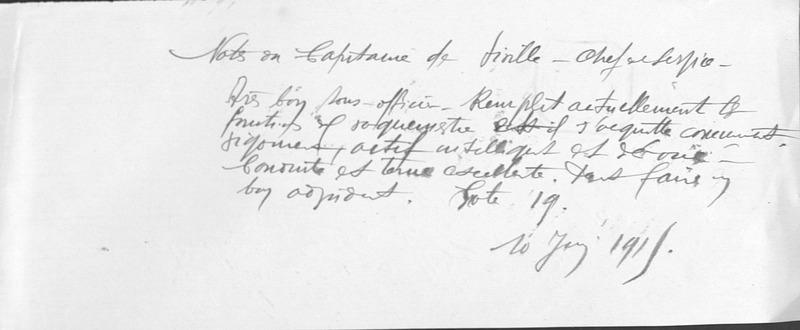 Notes du Capitaine de Siville - Chef de Service -
Très bon sous-officier. Remplit actuellement les
fonctions de vaguemestre et il s'acquitte consciencieusement.
Vigoureux, actif intelligent et dévoué -
Conduite et tenue excellente. Peut faire un
bon adjudant. Cote 19.
10 1915.